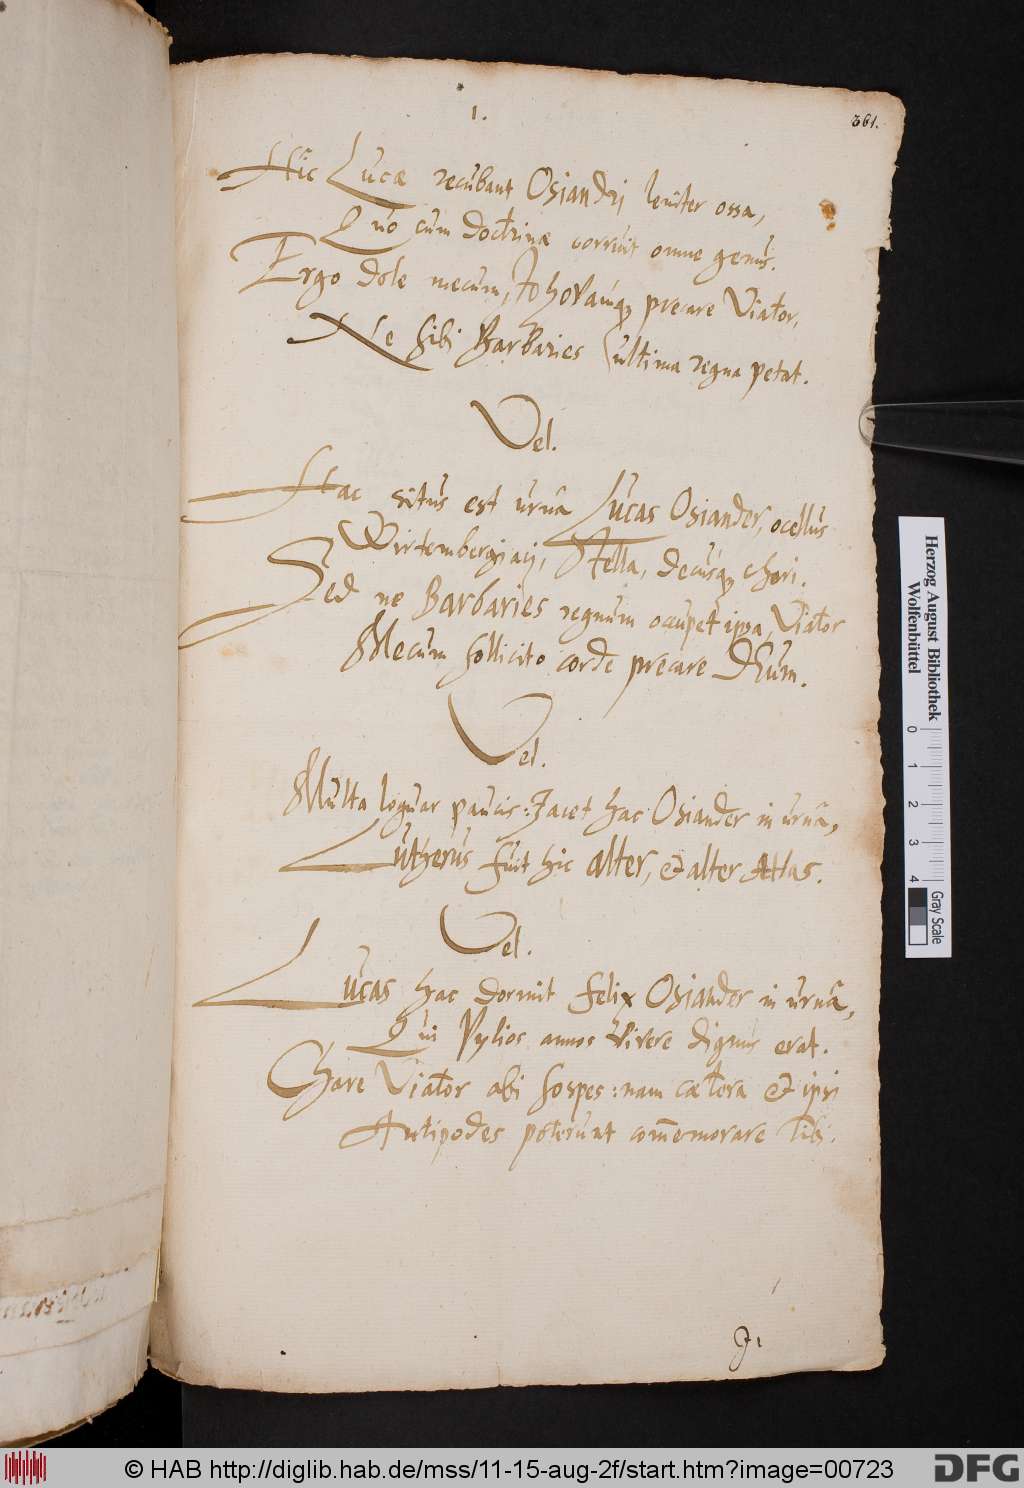 1.
361.
Hîc Lucæ recubant Osiandrj leniter ossa,
Quo cum doctrinæ corruit omne genus.
Ergo dole mecum, JehoVamq₃ precare Viator,
Ne sibi Barbaries ultima regna petat.
Vel.
Hac situs est urnâ Lucas Osiander, ocellus
Wirtembergiaci, Stella, decusq₃ chori.
Sed ne Barbaries regnum occupet ipsa, Viator
Mecum sollicito corde precare DEum.
Vel.
Multa loquar paucis: Jacet hac Osiander in urnâ,
Lutherus fuit hic alter, et alter Atlas.
Vel.
Lucas hac dormit felix Osiander in urnâ,
Qui Pylios annos vivere dignus erat.
Chare Viator abi sospes: nam cætera et ipsi
Antipodes poterunt com̄emorare tibi.
Herzog August Bibliothek
Wolfenbüttel
0 1 2 3 4
Gray Scale
© HAB http://diglib.hab.de/mss/11-15-aug-2f/start.htm?image=00723
DFG